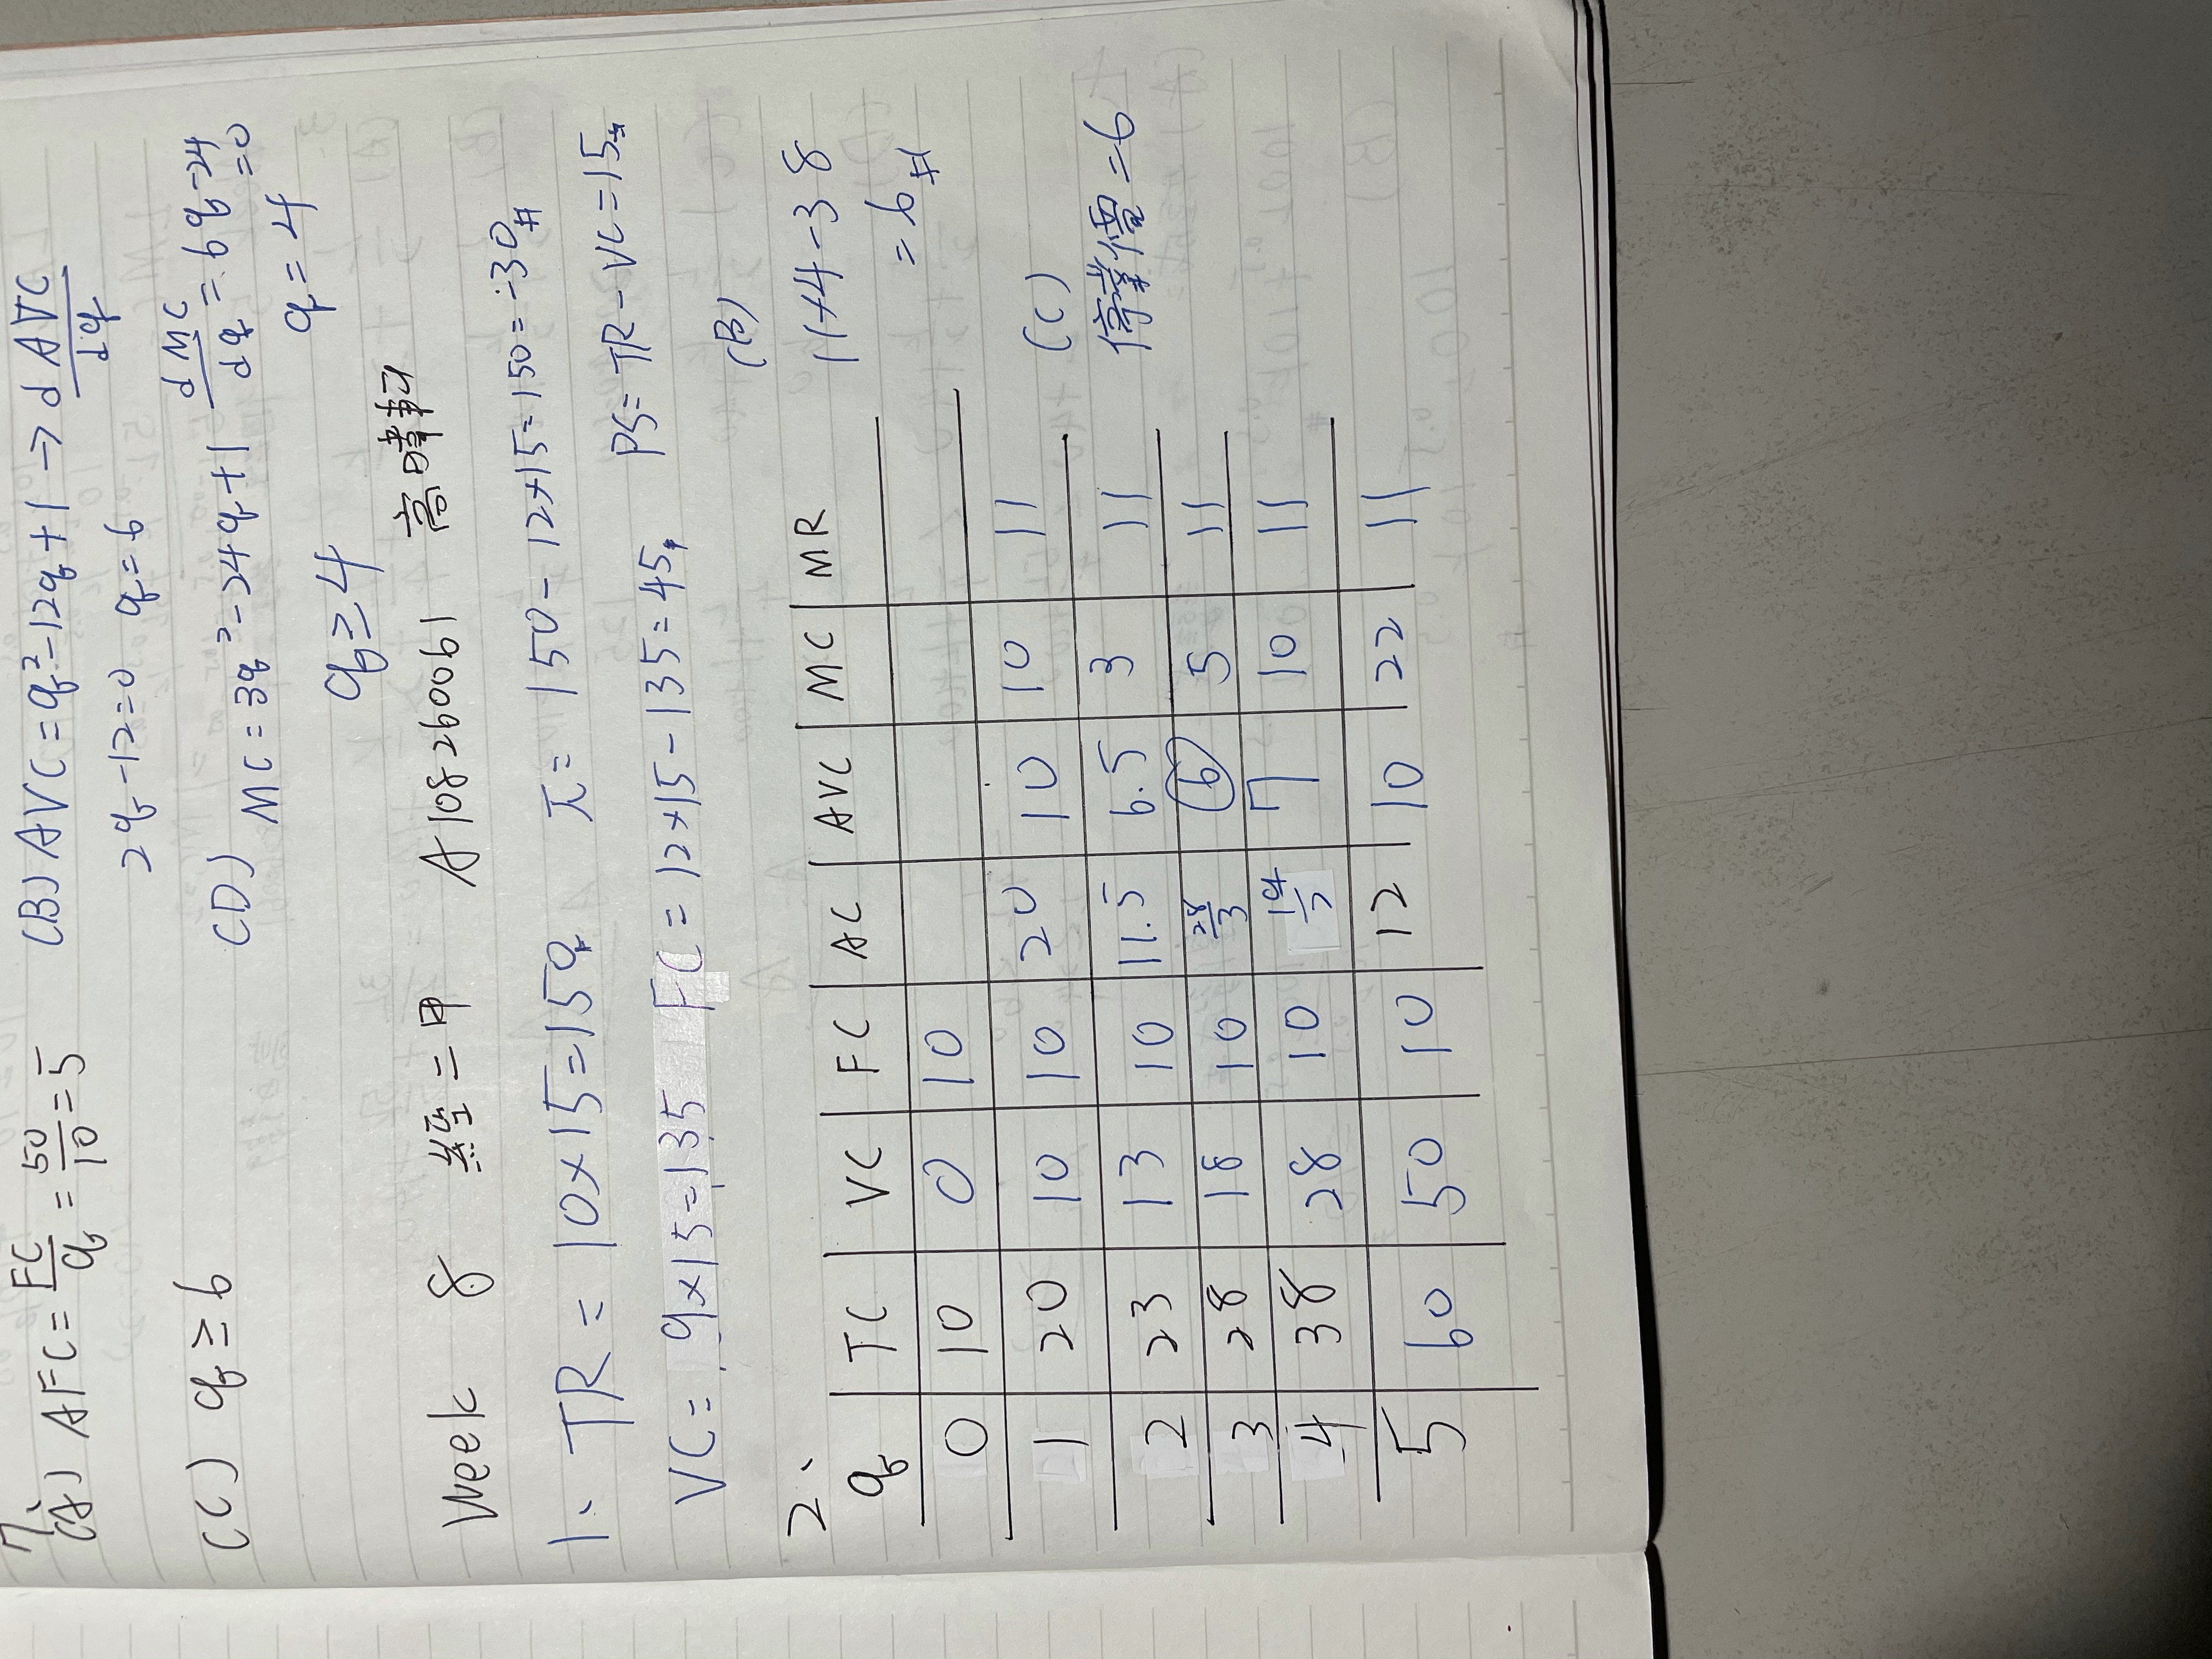 7、
(A) AFC = FC/q = 50/10 = 5
(B) AVC = q²-12q+1 → dAVC/dq
2q-12=0 q=6
(C) q ≥ 6
(D) MC = 3q²-24q+1 dMC/dq = 6q-24 =0
q = 4
q ≥ 4
Week 8 經二甲 A108260061 高暐軒
1、 TR = 10×15=150 π = 150 - 12×15 = 150 = -30 #
VC = 9×15=135 FC = 12×15-135=45 PS = TR - VC = 15
2、
q TC VC FC AC AVC MC MR
0 10 0 10
1 20 10 10 20 10 10 11
2 23 13 10 11.5 6.5 3 11
3 28 18 10 28/3 6 5 11
4 38 28 10 19/2 7 10 11
5 60 50 10 12 10 22 11
(B)
11×4-38
= 6 #
(C)
停業價=6